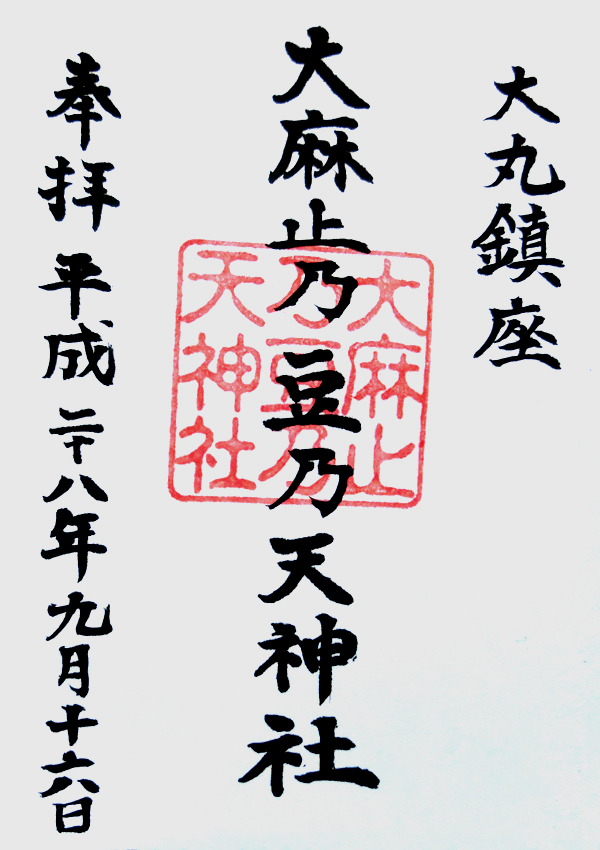 大丸鎮座
大麻止乃豆乃天神社
大麻止
乃豆乃
天神社
奉拝 平成二十八年九月十六日